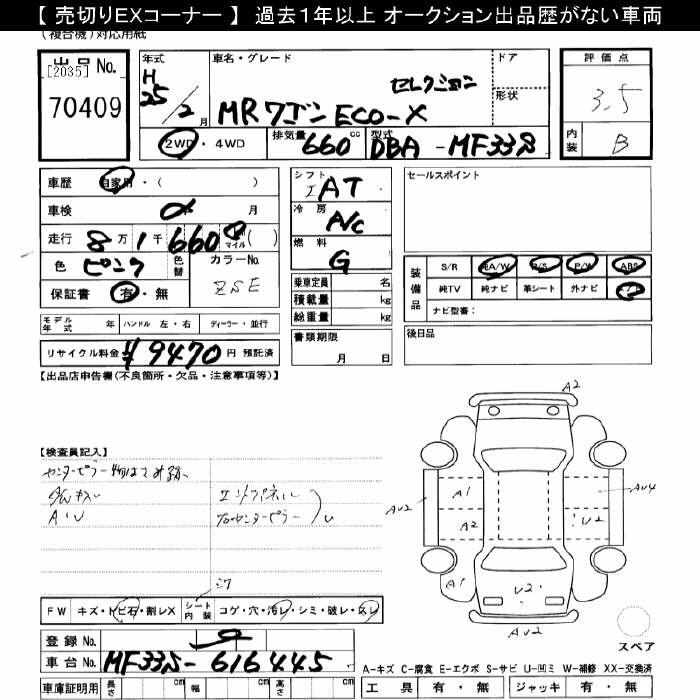 【 売切りEXコーナー 】 過去1年以上 オークション出品歴がない車両
(複合機)対応用紙
出品No.
[2035]
70409
年式
H
25/2月
車名・グレード
MRワゴン ECO-X
セレクション
ドア
形状
評価点
3.5
内装 B
2WD・4WD
排気量 660 cc
型式 DBA-MF33S
車歴 自家用・( )
車検 月
走行 8万1千660 マイル( )
色 ピンク
色替
カラーNo.
ZSE
保証書 有・無
シフト
IAT
冷房
A/C
燃料
G
乗車定員 名
積載量 kg
総重量 kg
セールスポイント
装備品
S/R 純A/W P/S P/W ABS
純TV 純ナビ 革シート 外ナビ
ナビ型番:
モデル年式 年 ハンドル 左・右 ディーラー・並行
リサイクル料金 ¥9470円 預託済
書類期限
月 日
後日品
【出品店申告欄(不良箇所・欠品・注意事項等)】
【検査員記入】
A・U
A2
A1
AU4
AU2
A2
U2
A1
U2
AU2
FW キズ・トビ石・割レX
シート内装 コゲ・穴・汚レ・シミ・破レ・スレ
登録No.
車台No. MF33S-616445
スペア
A-キズ C-腐食 E-エクボ S-サビ U-凹ミ W-補修 XX-交換済
車庫証明用 長さ cm 幅 cm 高さ cm
工具 有・無 ジャッキ 有・無